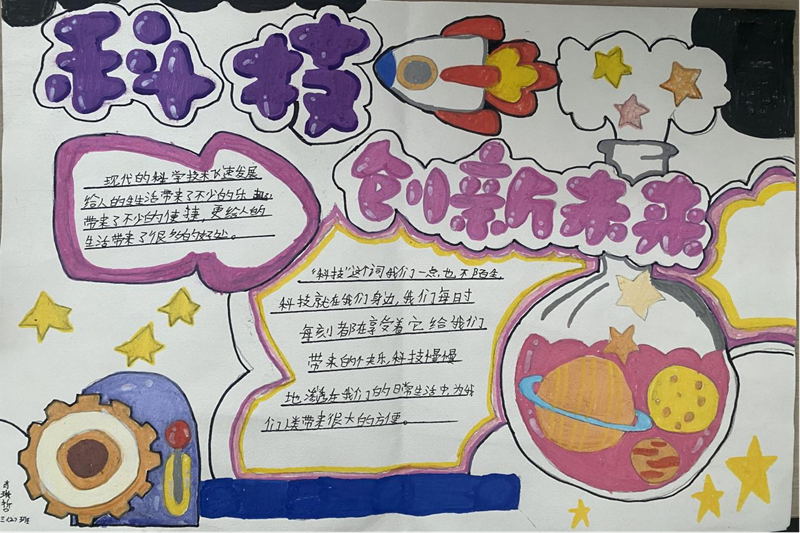 科技
创新未来
现代的科学技术飞速发展
给人的生活带来了不少的乐趣,
带来了不少的便捷,更给人的
生活带来了很多的好处。
“科技”这个词我们一点也不陌生,
科技就在我们身边,我们每日时
每刻都在享受着它给我们
带来的快乐,科技慢慢
地渗透在我们的日常生活中,为我
们人类带来很大的方便。
三(2)班